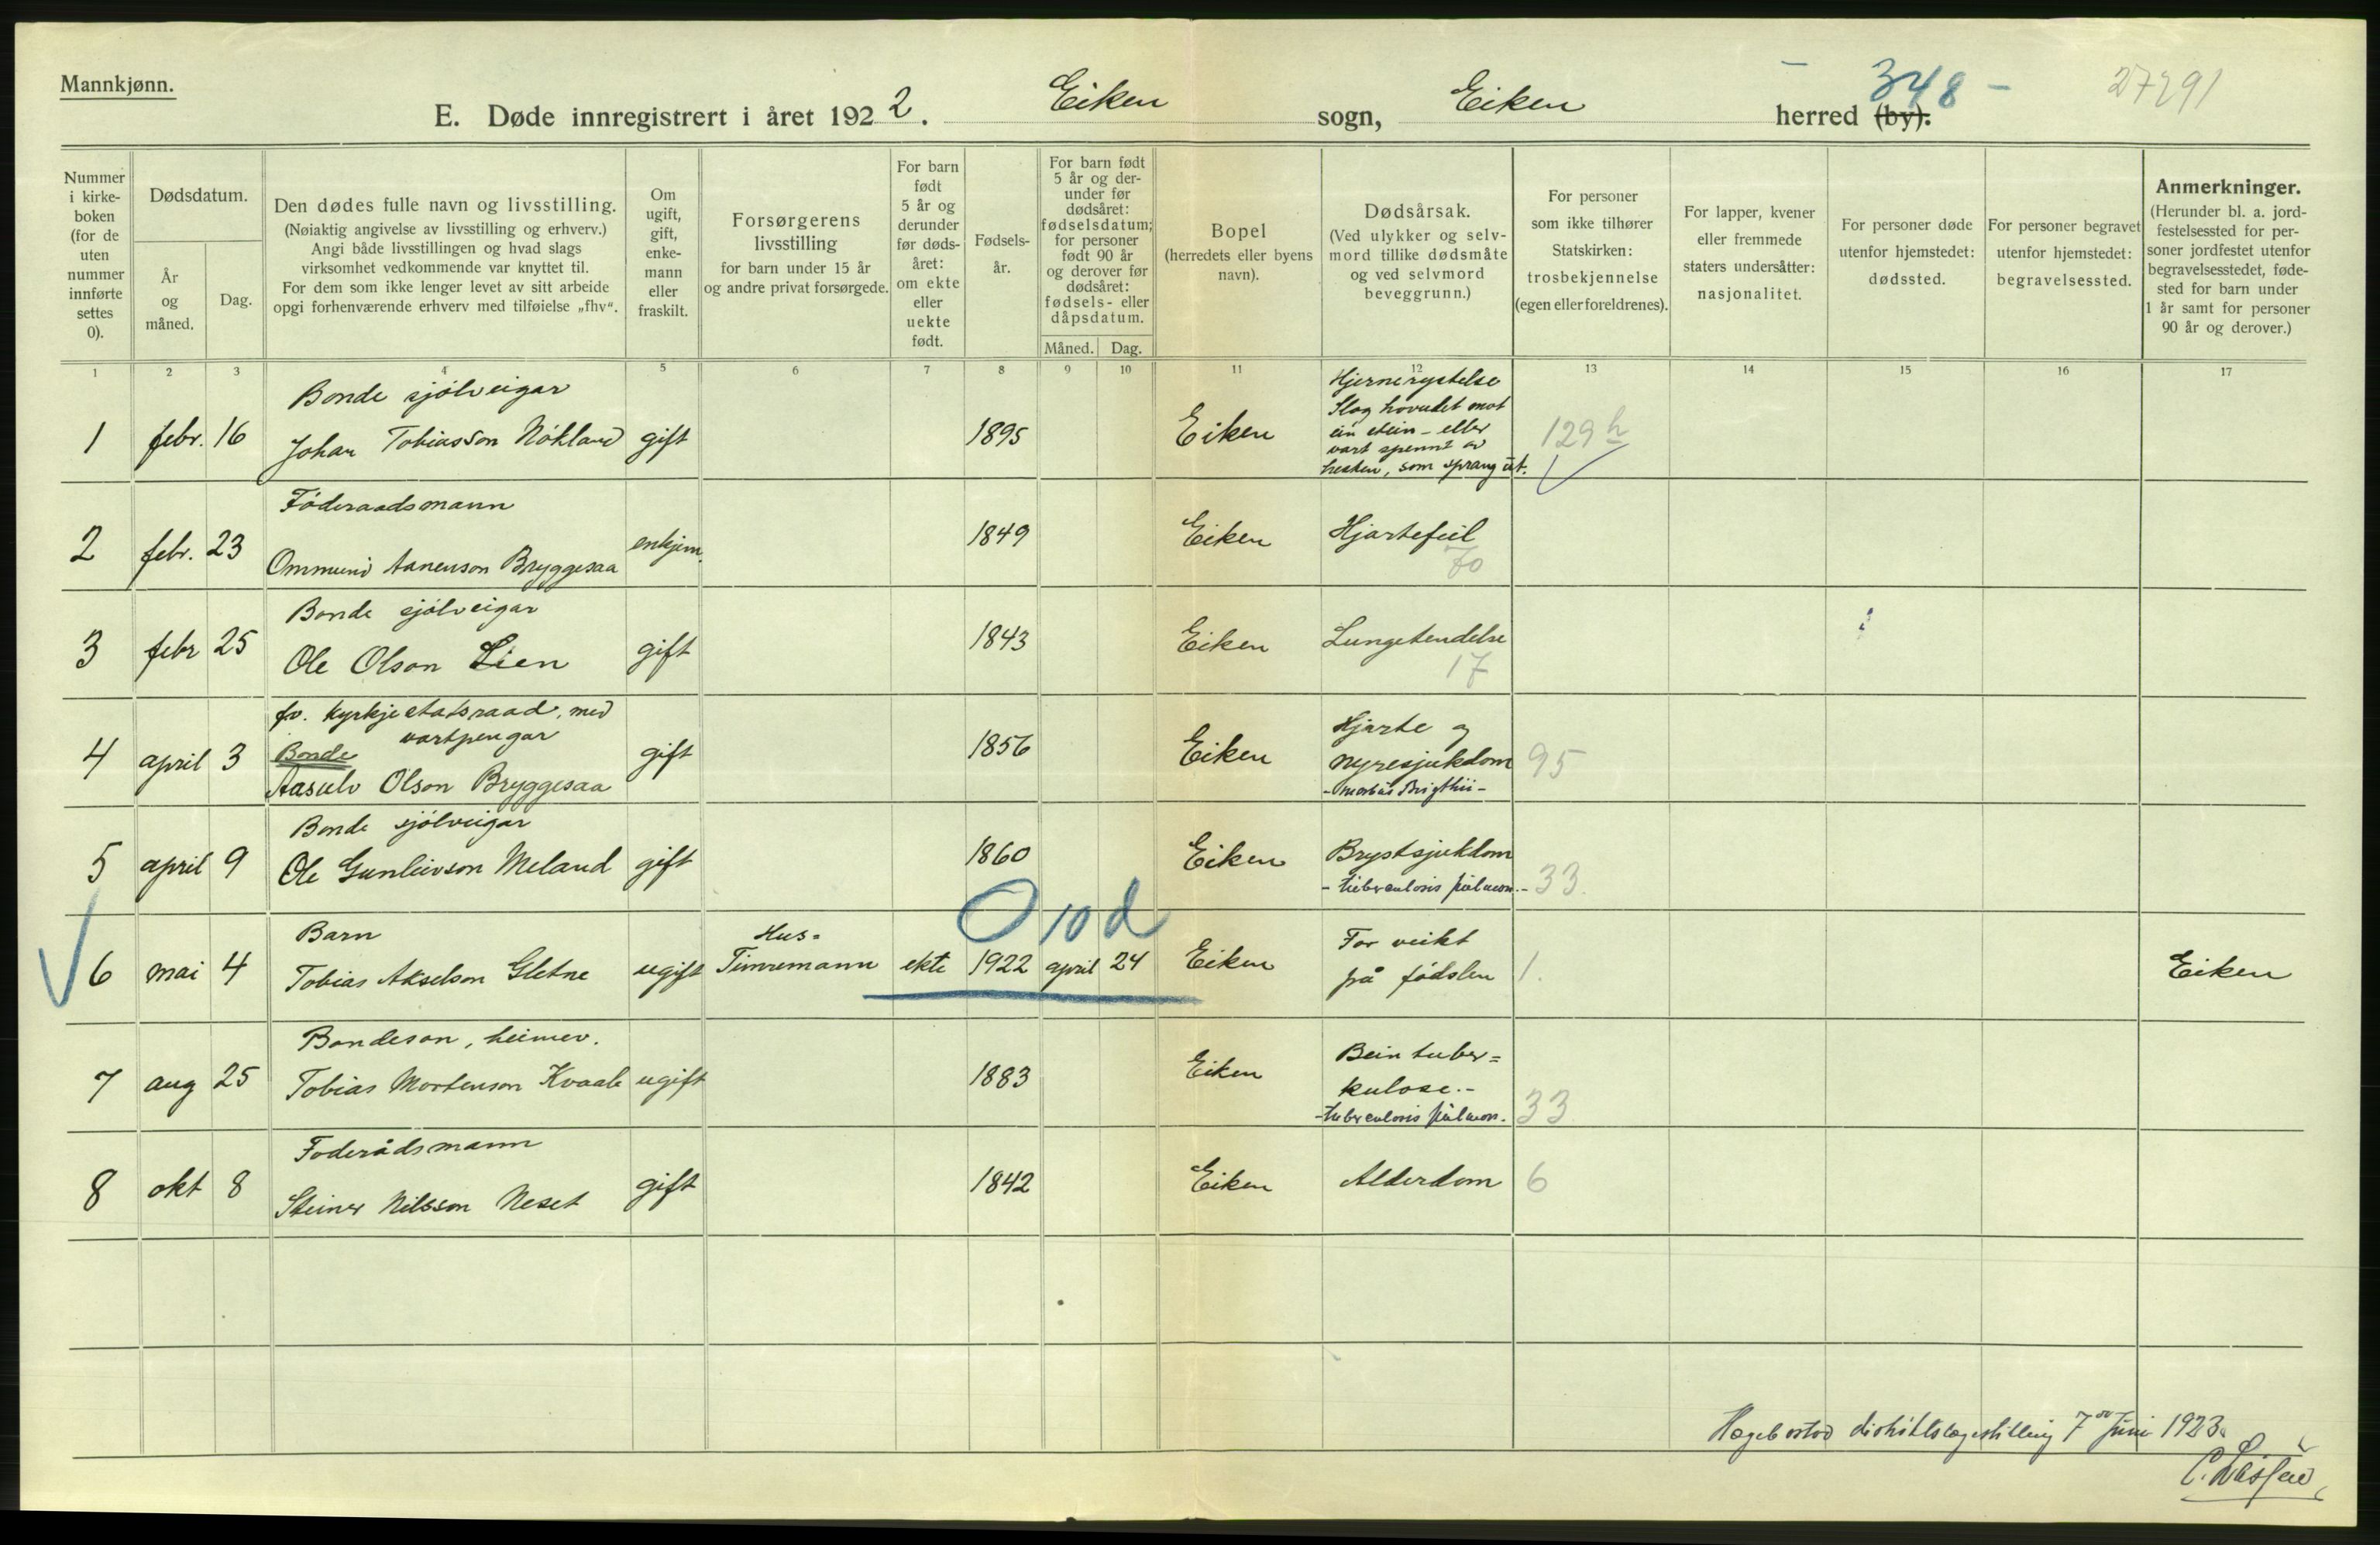 Mannkjønn.
E. Døde innregistrert i året 1922. Eiken sogn, Eiken herred (by).
348 -
27291
Nummer i kirkeboken (for de uten nummer innførte settes 0).
Dødsdatum.
År og måned.
Dag.
Den dødes fulle navn og livsstilling.
(Nøiaktig angivelse av livsstilling og erhverv.)
Angi både livsstillingen og hvad slags
virksomhet vedkommende var knyttet til.
For dem som ikke lenger levet av sitt arbeide
opgi forhenværende erhverv med tilføielse „fhv“.
Om ugift, gift, enkemann eller fraskilt.
Forsørgerens livsstilling
for barn under 15 år
og andre privat forsørgede.
For barn født 5 år og derunder før dødsåret: om ekte eller uekte født.
Fødselsår.
For barn født 5 år og derunder før dødsåret: fødselsdatum; for personer født 90 år og derover før dødsåret: fødsels- eller dåpsdatum.
Måned. Dag.
Bopel
(herredets eller byens navn).
Dødsårsak.
(Ved ulykker og selvmord tillike dødsmåte og ved selvmord beveggrunn.)
For personer som ikke tilhører Statskirken: trosbekjennelse (egen eller foreldrenes).
For lapper, kvener eller fremmede staters undersåtter: nasjonalitet.
For personer døde utenfor hjemstedet: dødssted.
For personer begravet utenfor hjemstedet: begravelsessted.
Anmerkninger.
(Herunder bl. a. jordfestelsessted for personer jordfestet utenfor begravelsesstedet, fødested for barn under 1 år samt for personer 90 år og derover.)
1 2 3 4 5 6 7 8 9 10 11 12 13 14 15 16 17
Bonde sjølveigar
1 febr. 16 Johan Tobiasson Nökland gift 1895 Eiken
Hjernerystelse
Slog hovudet mot
ein stein - eller
vart spennt av
hesten, som sprang ut.
129 h
Föderaadsmann
2 febr. 23 Ommund Aanenson Bryggesaa enkjem. 1849 Eiken Hjartefeil
70
Bonde sjølveigar
3 febr 25 Ole Olson Lien gift 1843 Eiken Lungetendelse
17
fv. kyrkjestatsraad, med
vartpengar
Bonde
4 april 3 Aasulv Olson Bryggesaa gift 1856 Eiken
Hjarte og
nyresjukdom 95
- morbus Brigthii -
Bonde sjølveigar
5 april 9 Ole Gunleivson Meland gift 1860 Eiken Brystsjukdom
- tuberculosis pulmon. - 33.
0 10 d
Barn
6 mai 4 Tobias Akselson Gletne ugift Hus=
Timremann ekte 1922 april 24 Eiken For veikt
på födslen 1. Eiken
Bondeson, heimev.
7 aug 25 Tobias Mortenson Kvaale ugift 1883 Eiken Bein tuber=
kulose. -
- tuberculosis pulmon. 33
Foderådsmann
8 okt 8 Steiner Nilsson Neset gift 1842 Eiken Alderdom 6
Hægebostad distriktslægestilling 7 Juni 1923.